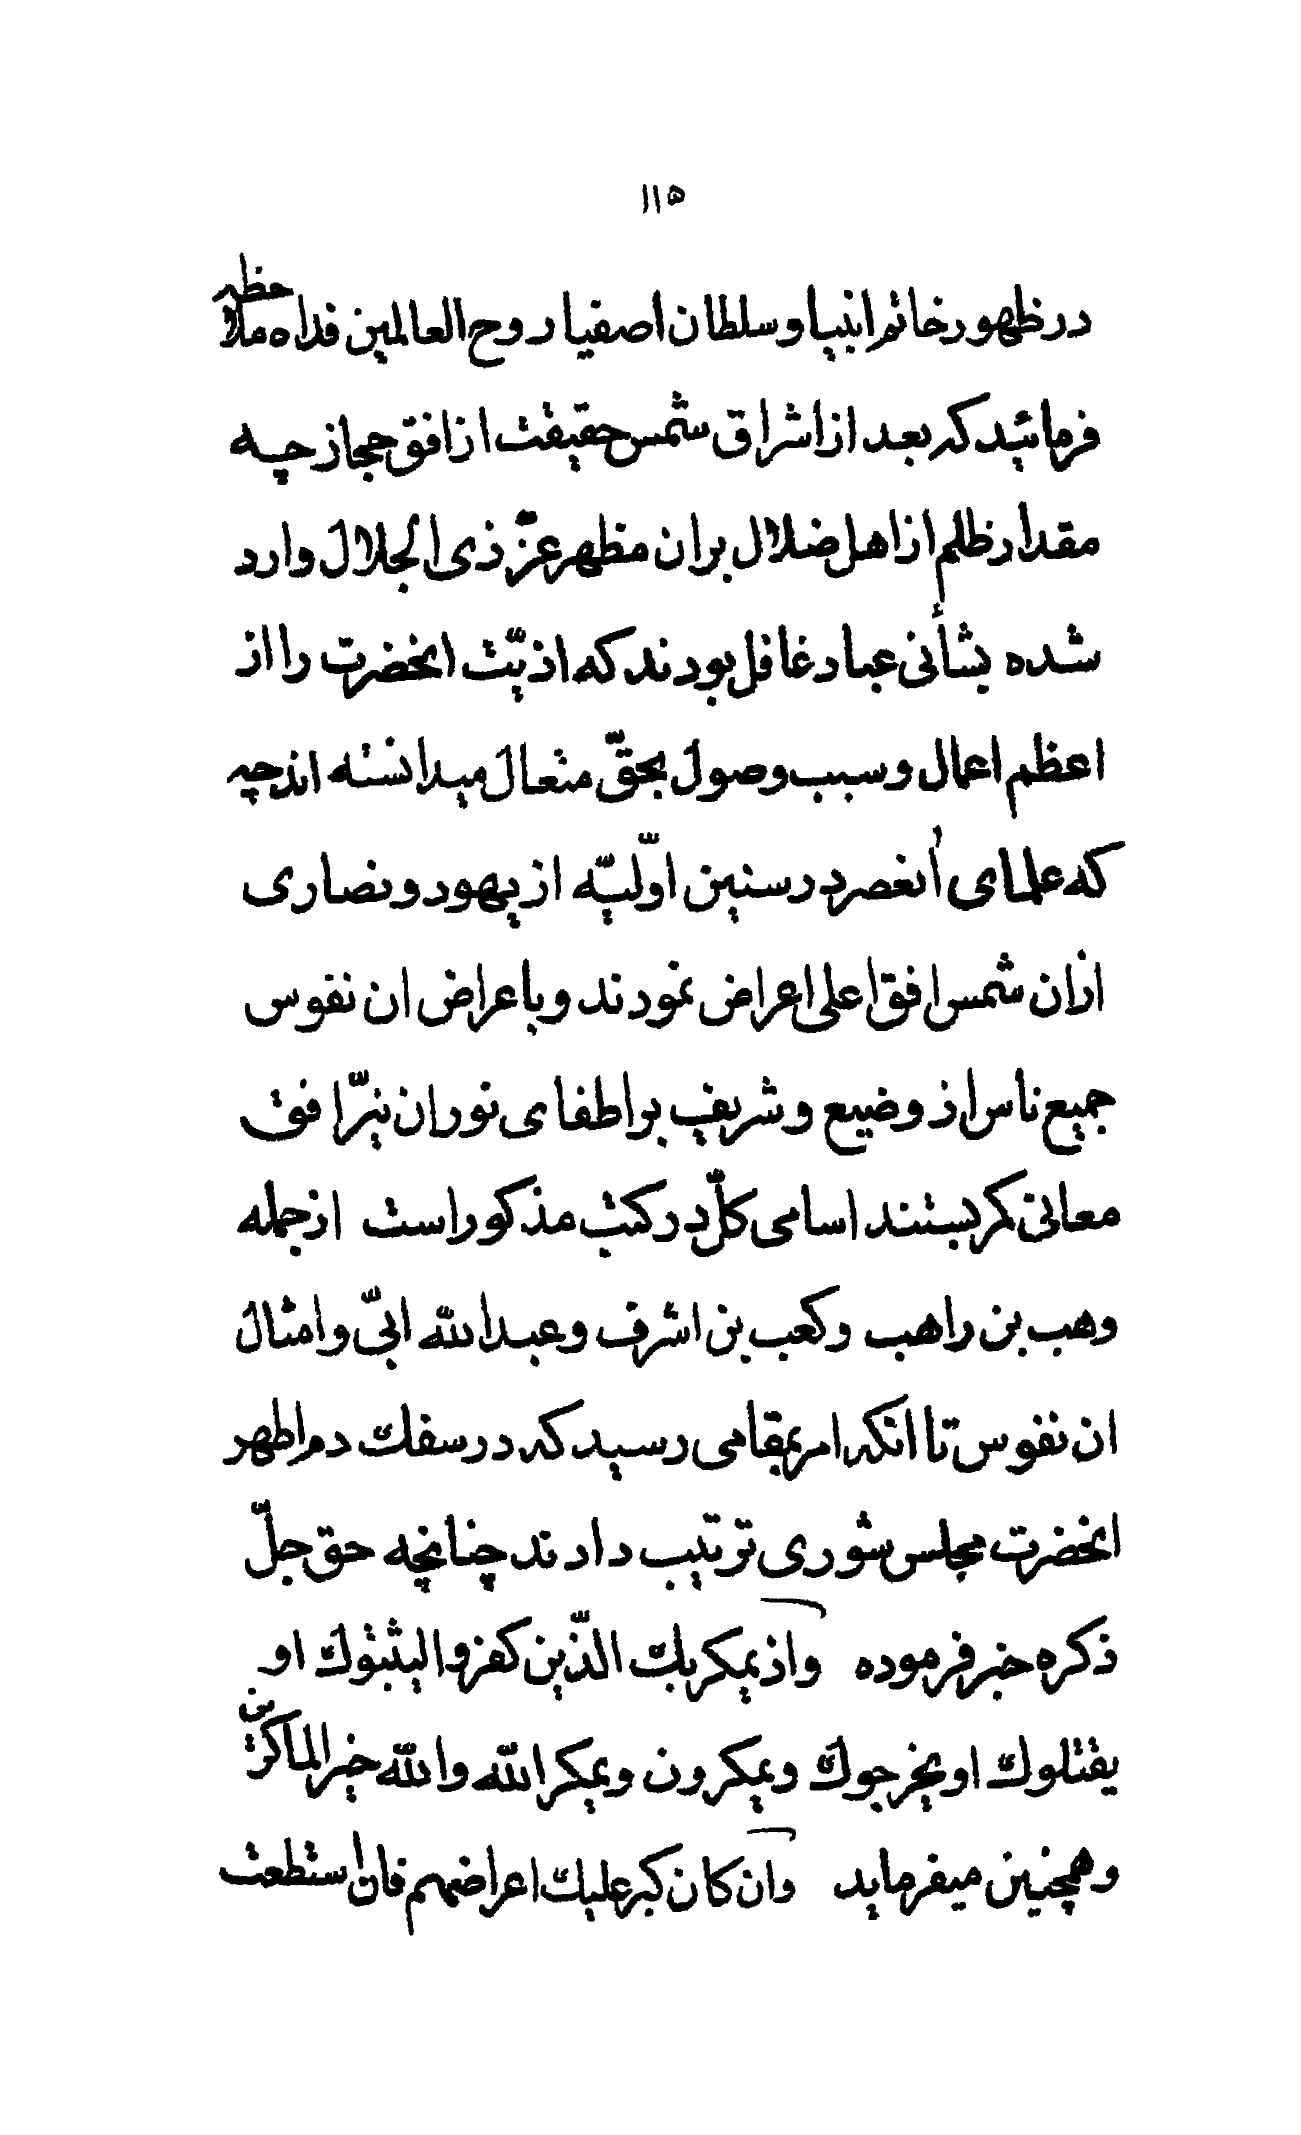 ۱۱۵
در ظهور خاتم انبیا و سلطان اصفیا روح العالمین فداه ملاحظه
فرمائید که بعد از اشراق شمس حقیقت از افق حجاز چه
مقدار ظلم از اهل ضلال بر ان مظهر عزّ ذی الجلال وارد
شده بشأنی عباد غافل بودند که اذیّت انحضرت را از
اعظم اعمال و سبب وصول بحقّ متعال میدانسته اند چه
که علمای أنعصر در سنین اوّلیّه از یهود و نصاری
ازان شمس افق اعلی اعراض نمودند و باعراض ان نفوس
جمیع ناس از وضیع و شریف بر اطفای نور ان نیّر افق
معانی کمر بستند اسامی کلّ در کتب مذکور است از جمله
وهب بن راهب و کعب بن اشرف و عبدالله ابیّ و امثال
ان نفوس تا انکه امر بمقامی رسید که در سفك دم اطهر
انحضرت مجلس شوری ترتیب دادند چنانچه حق جلّ
ذکره خبر فرموده واذ یمکر بك الّذین کفروا لیثبتوك او
یقتلوك او یخرجوك ویمکرون ویمکر الله والله خیر الماکرین
و همچنین میفرماید وان کان کبر علیك اعراضهم فان استطعت